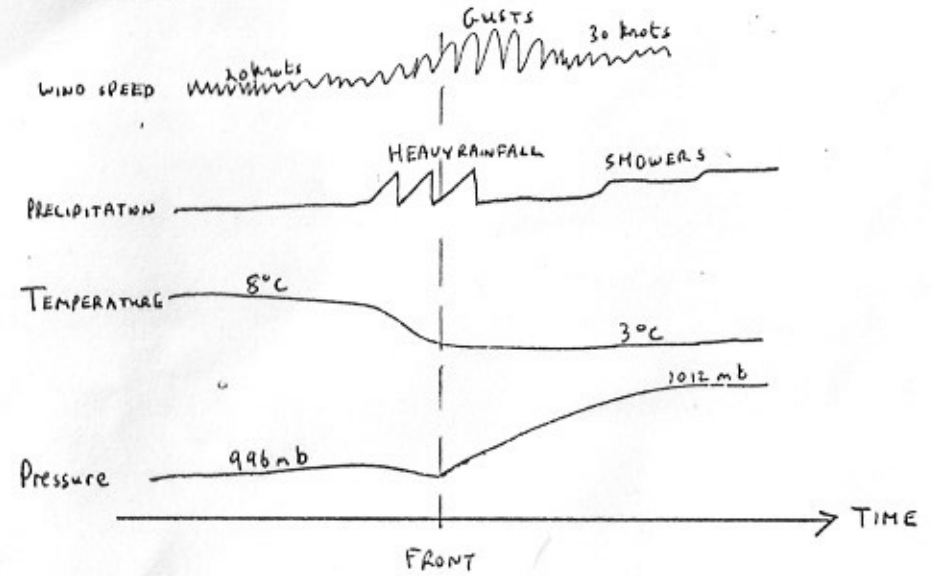 GUSTS
20 knots
30 knots
WIND SPEED
HEAVY RAINFALL
SHOWERS
PRECIPITATION
8°C
TEMPERATURE
3°C
1012 mb
996 mb
Pressure
TIME
FRONT